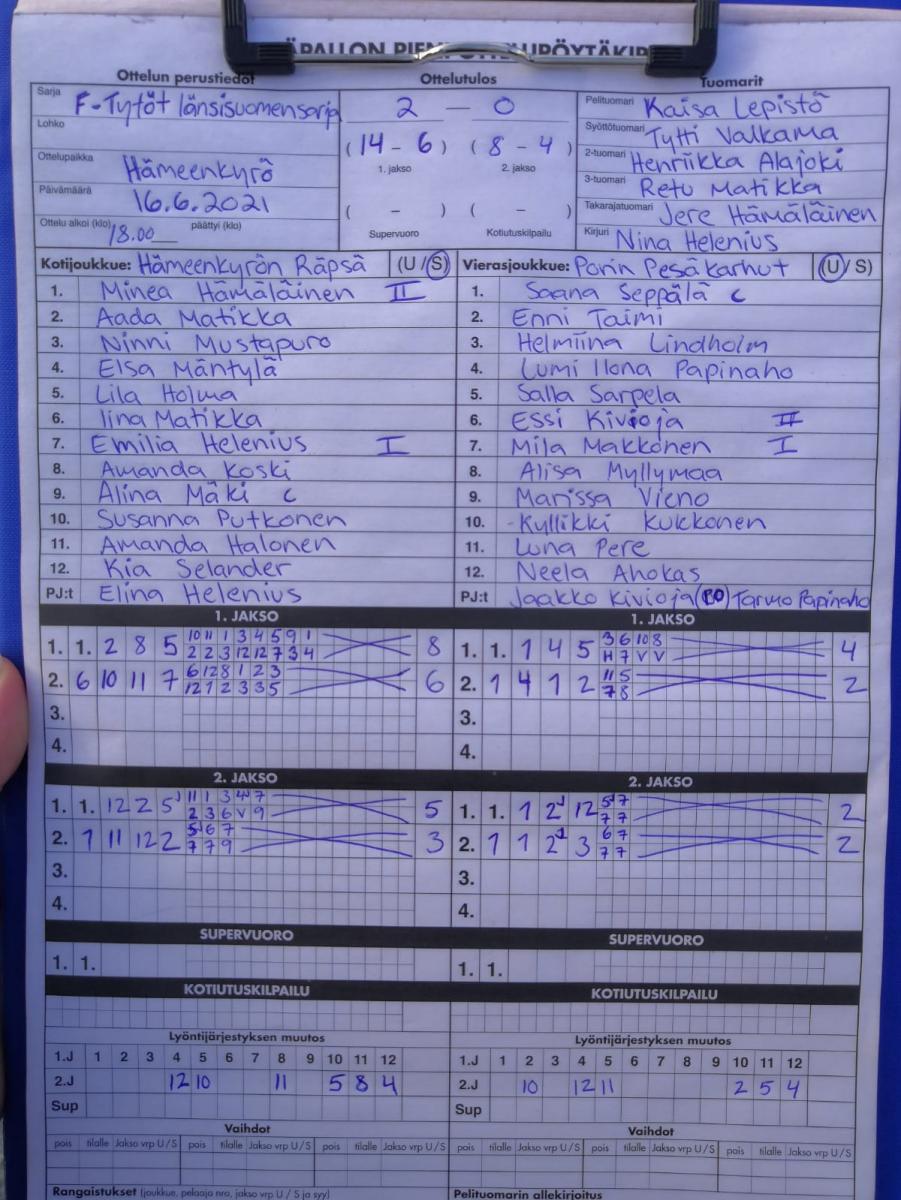 Ottelun perustiedot
Sarja F-Tytöt länsisuomensarja
Lohko
Ottelupaikka Hämeenkyrö
Päivämäärä 16.6.2021
Ottelu alkoi (klo) 18.00 päättyi (klo)
Ottelutulos
2 — 0
(14 - 6) (8 - 4)
1. jakso 2. jakso
( - ) ( - )
Supervuoro Kotiutuskilpailu
Tuomarit
Pelituomari Kaisa Lepistö
Syöttötuomari Tytti Valkama
2-tuomari Henriikka Alajoki
3-tuomari Retu Matikka
Takarajatuomari Jere Hämäläinen
Kirjuri Nina Helenius
Kotijoukkue: Hämeenkyrön Räpsä (U/S)
1. Minea Hämäläinen II
2. Aada Matikka
3. Ninni Mustapuro
4. Elsa Mäntylä
5. Lila Holma
6. Iina Matikka
7. Emilia Helenius I
8. Amanda Koski
9. Alina Mäki c
10. Susanna Putkonen
11. Amanda Halonen
12. Kia Selander
PJ:t Elina Helenius
Vierasjoukkue: Porin Pesäkarhut (U/S)
1. Saana Seppälä c
2. Enni Taimi
3. Helmiina Lindholm
4. Lumi Ilona Papinaho
5. Salla Sarpela
6. Essi Kivioja II
7. Mila Makkonen I
8. Alisa Myllymaa
9. Marissa Vieno
10. Kyllikki Kukkonen
11. Luna Pere
12. Neela Ahokas
PJ:t Jaakko Kivioja Tarmo Papinaho
1. JAKSO
1. 1. 2 8 5 10 11 1 3 4 5 9 1 8
2 2 3 12 12 7 3 4
2. 6 10 11 7 6 12 8 1 2 3 6
12 1 2 3 3 5
3.
4.
1. JAKSO
1. 1. 1 4 5 3 6 10 8 4
H 7 V V
2. 1 4 1 2 11 5 2
7 8
3.
4.
2. JAKSO
1. 1. 12 2 5 11 1 3 4 7 5
2 3 6 V 9
2. 1 11 12 2 5 6 7 3
7 7 9
3.
4.
2. JAKSO
1. 1. 1 2 12 5 7 2
7 7
2. 1 1 2 3 6 7 2
7 7
3.
4.
SUPERVUORO
1. 1.
SUPERVUORO
1. 1.
KOTIUTUSKILPAILU
KOTIUTUSKILPAILU
Lyöntijärjestyksen muutos
1.J 1 2 3 4 5 6 7 8 9 10 11 12
2.J 12 10 11 5 8 4
Sup
Lyöntijärjestyksen muutos
1.J 1 2 3 4 5 6 7 8 9 10 11 12
2.J 10 12 11 2 5 4
Sup
Vaihdot
pois tilalle Jakso vrp U/S pois tilalle Jakso vrp U/S pois tilalle Jakso vrp U/S
Vaihdot
pois tilalle Jakso vrp U/S pois tilalle Jakso vrp U/S pois tilalle Jakso vrp U/S
Rangaistukset (joukkue, pelaaja nro, jakso vrp U / S ja syy)
Pelituomarin allekirjoitus